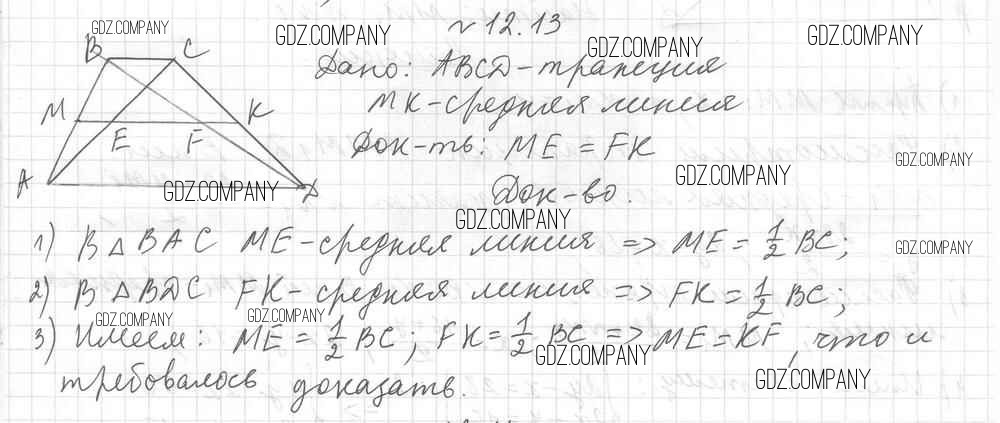 GDZ.COMPANY
№ 12.13
GDZ.COMPANY
GDZ.COMPANY
GDZ.COMPANY
B C
Дано: ABCD - трапеция
M K
MK - средняя линия
E F
Док-ть: ME = FK
GDZ.COMPANY
A D
GDZ.COMPANY
GDZ.COMPANY
Док-во.
GDZ.COMPANY
1) В △ BAC ME - средняя линия => ME = 1/2 BC;
GDZ.COMPANY
2) В △ BDC FK - средняя линия => FK = 1/2 BC;
GDZ.COMPANY
GDZ.COMPANY
3) Имеем: ME = 1/2 BC; FK = 1/2 BC => ME = KF, что и
GDZ.COMPANY
требовалось доказать.
GDZ.COMPANY